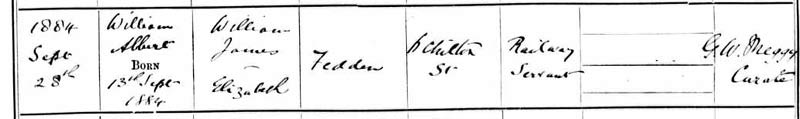 1884
Sept
28th
William
Albert
BORN
13th Sept
1884
William
James
Elizabeth
Tedden
Chilton
St
Railway
Servant
G. W. Meggy
Curate